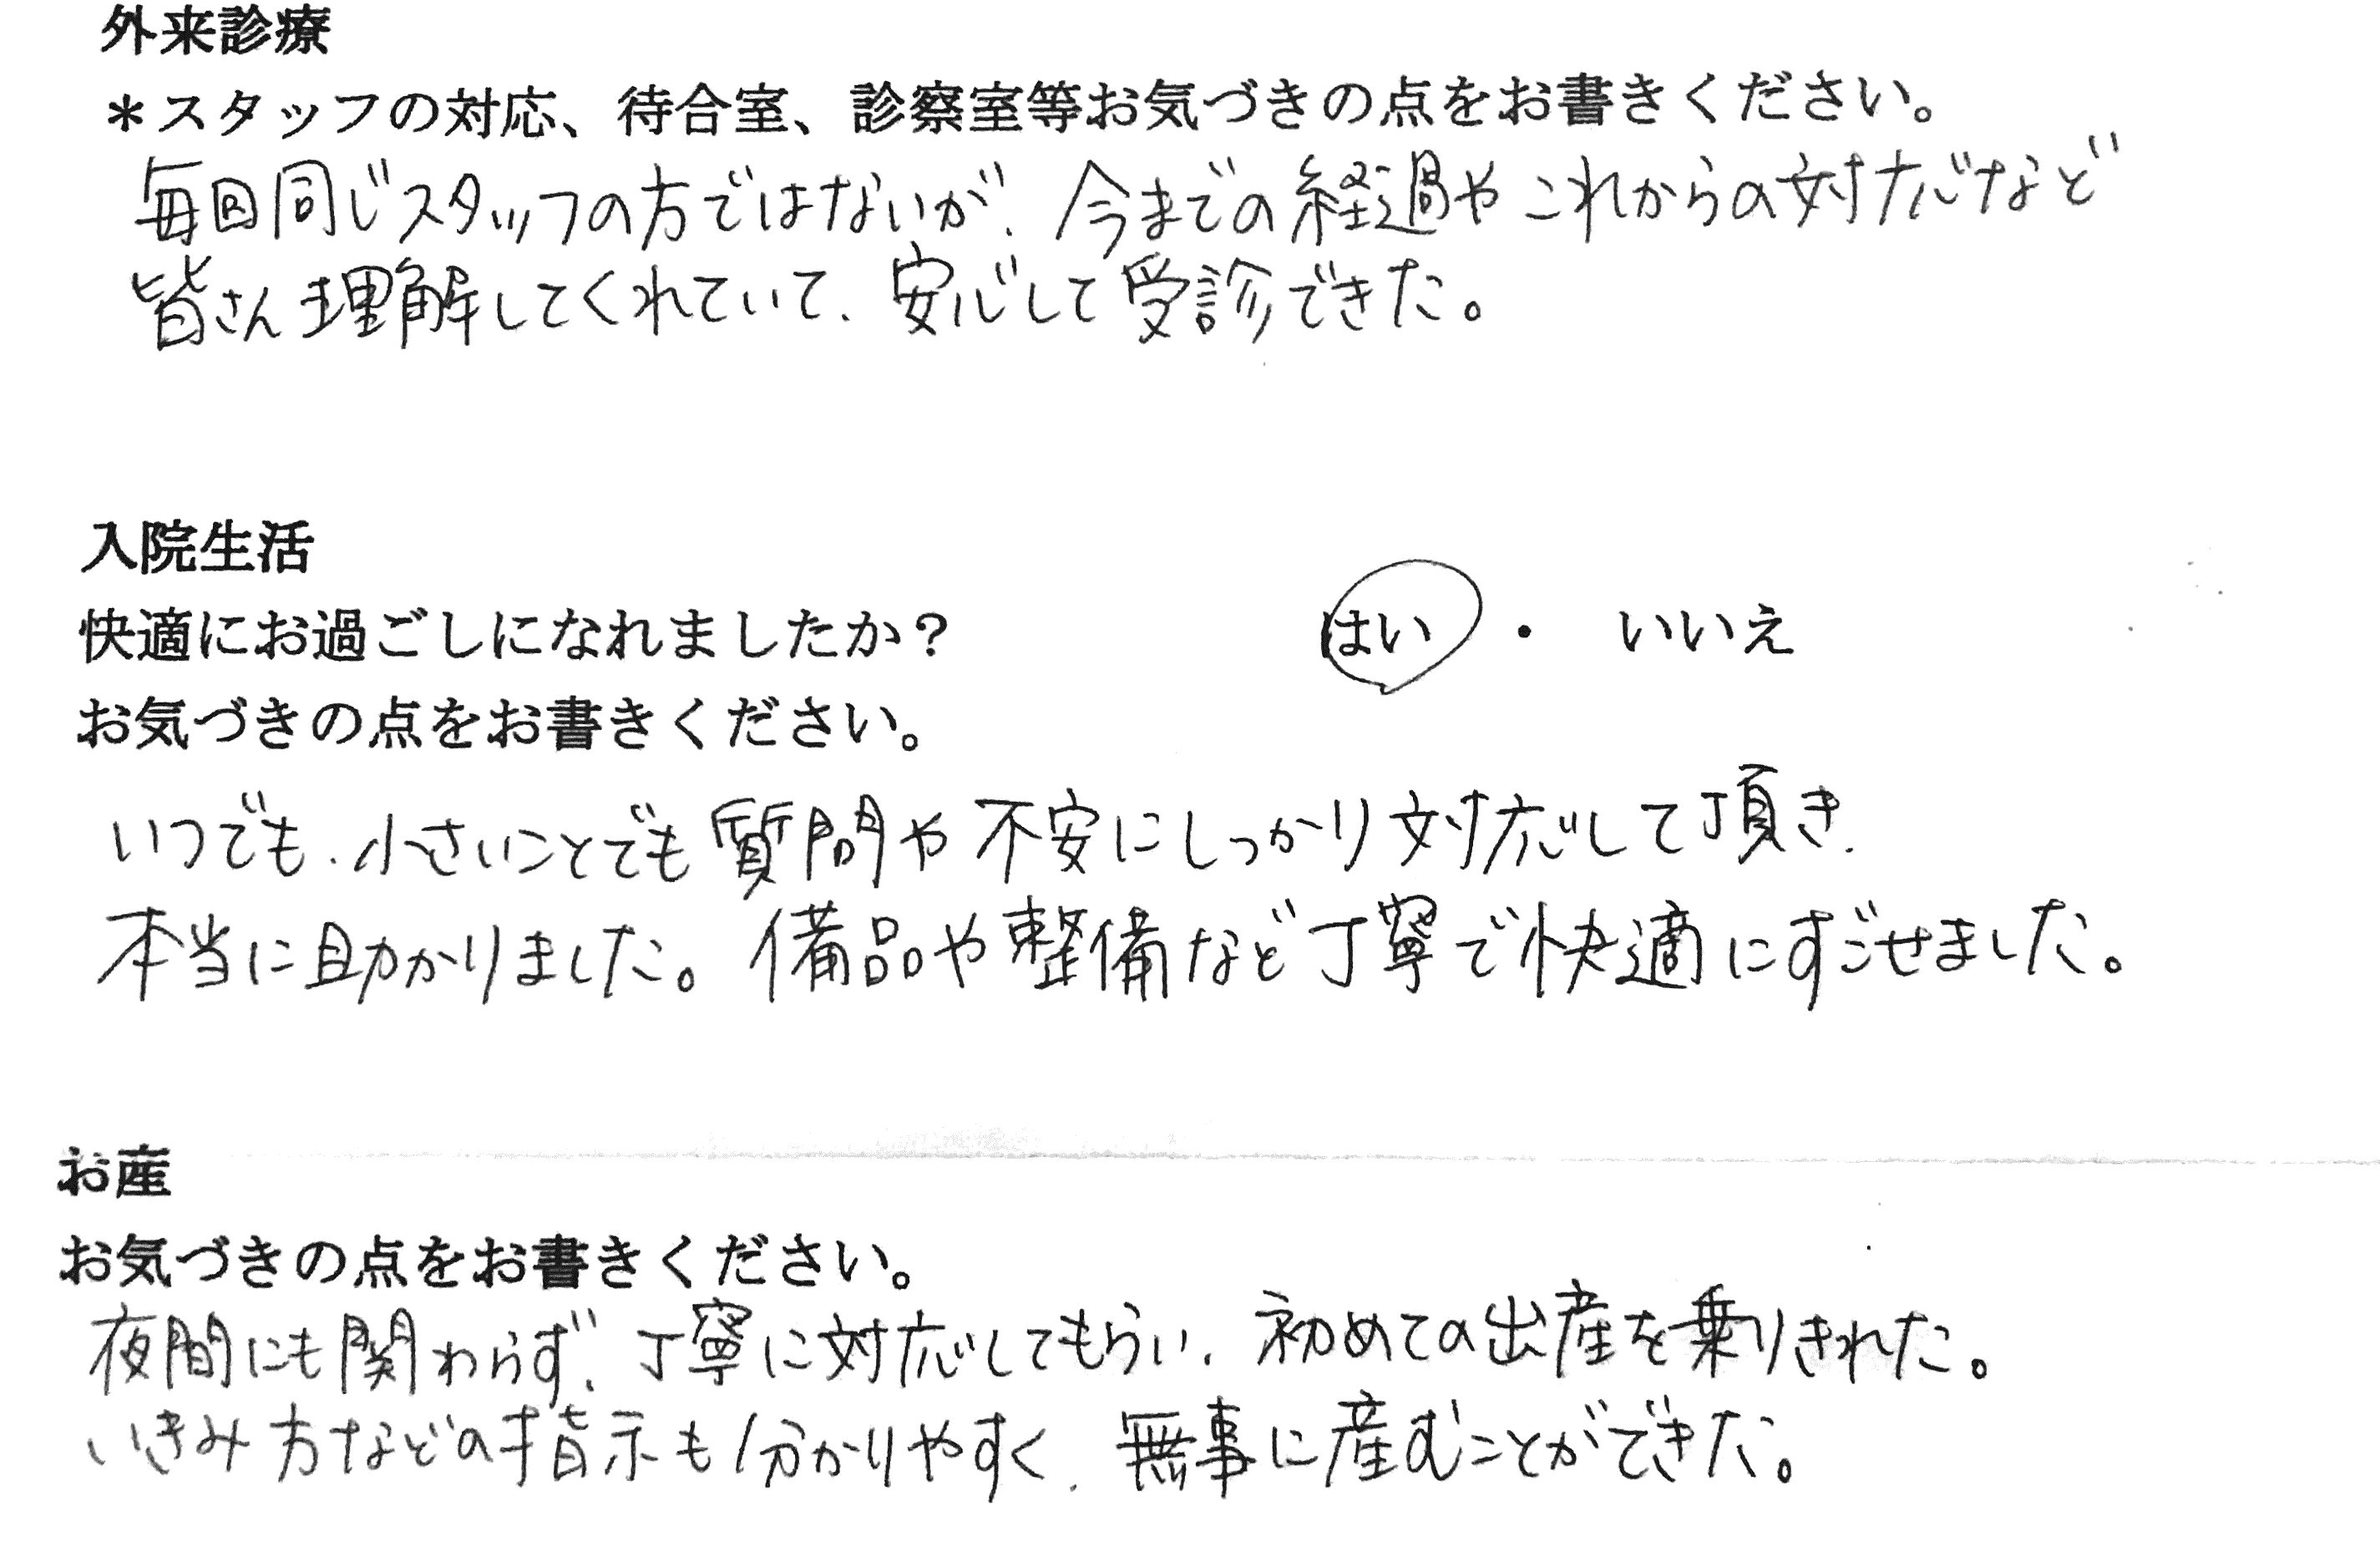 外来診療
＊スタッフの対応、待合室、診察室等お気づきの点をお書きください。
毎回同じスタッフの方ではないが、今までの経過やこれからの対応など
皆さん理解してくれていて、安心して受診できた。
入院生活
快適にお過ごしになれましたか？ はい ・ いいえ
お気づきの点をお書きください。
いつでも、小さいことでも質問や不安にしっかり対応して頂き、
本当に助かりました。備品や整備など丁寧で快適にすごせました。
お産
お気づきの点をお書きください。
夜間にも関わらず、丁寧に対応してもらい、初めての出産を乗りきれた。
いきみ方などの指示も分かりやすく、無事に産むことができた。